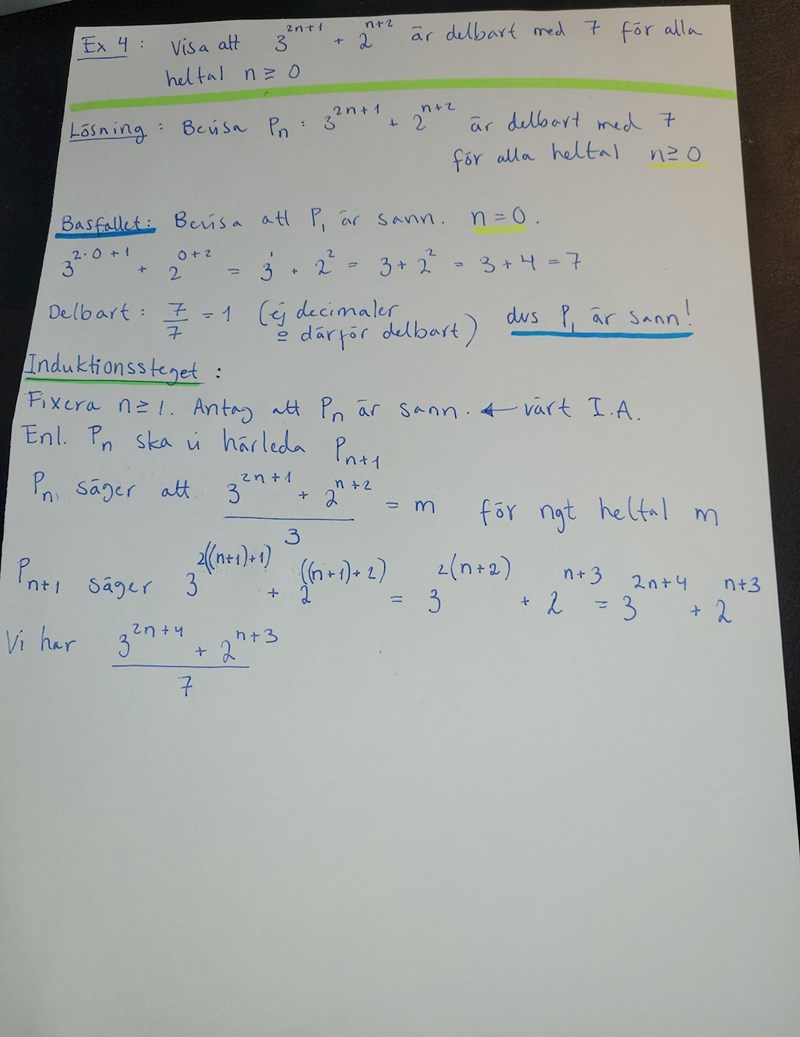 Ex 4 : Visa att 3^{2n+1} + 2^{n+2} är delbart med 7 för alla
heltal n ≥ 0
Lösning : Bevisa P_n : 3^{2n+1} + 2^{n+2} är delbart med 7
för alla heltal n ≥ 0
Basfallet: Bevisa att P_1 är sann. n = 0.
3^{2·0+1} + 2^{0+2} = 3^1 + 2^2 = 3 + 2^2 = 3 + 4 = 7
Delbart : 7/7 = 1 (ej decimaler
o därför delbart) dvs P_1 är sann!
Induktionssteget :
Fixera n ≥ 1. Antag att P_n är sann. ← vårt I.A.
Enl. P_n ska vi härleda P_{n+1}
P_n säger att (3^{2n+1} + 2^{n+2})/3 = m för ngt heltal m
P_{n+1} säger 3^{2((n+1)+1)} + 2^{((n+1)+2)} = 3^{2(n+2)} + 2^{n+3} = 3^{2n+4} + 2^{n+3}
Vi har (3^{2n+4} + 2^{n+3})/7